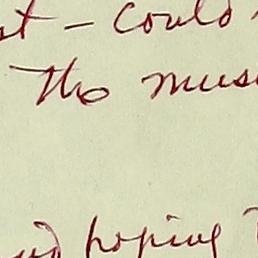 st – could
The muse
hoping